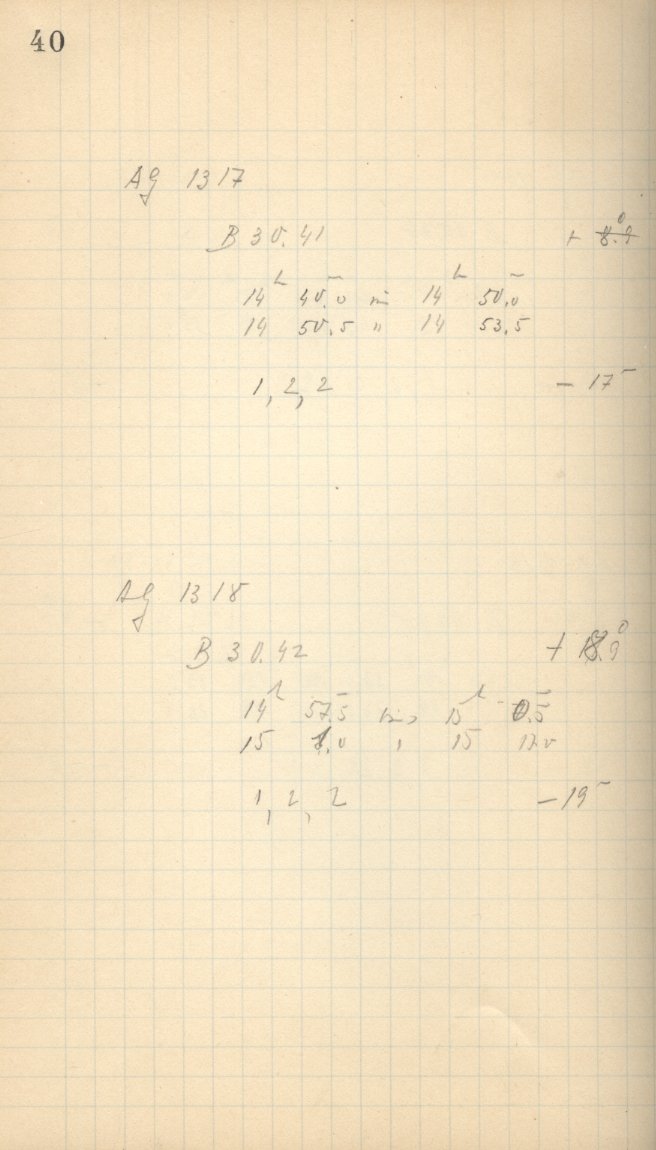 40
AG 1317
B 30.41 + 8.9°
14ʰ 40.0ᵐ bis 14ʰ 50.0ᵐ
14 50.5 " 14 53.5
1, 2, 2 − 17ᵐ
AG 1318
B 30.42 + 18.9°
14ʰ 57.5ᵐ bis 15ʰ 0.5ᵐ
15 1.0 " 15 17.0
1, 2, 2 − 19ᵐ